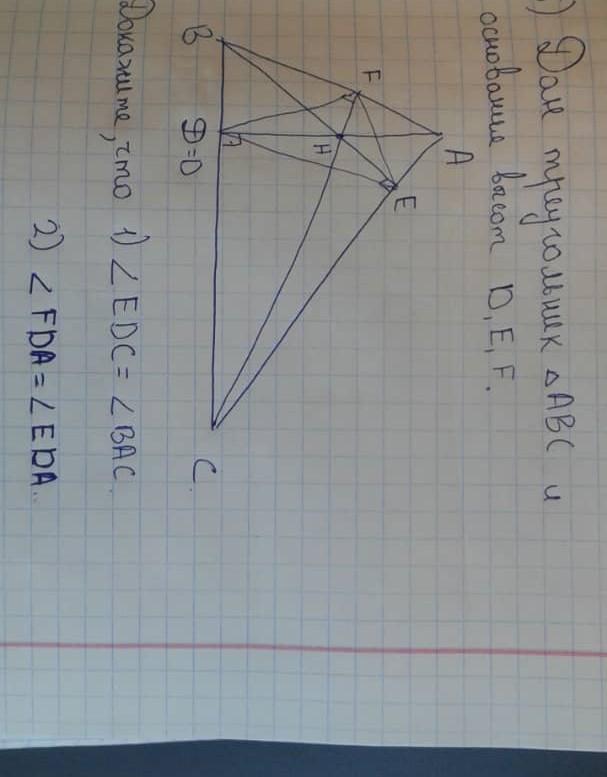 ) Дан треугольник △ABC и
основание высот D, E, F.
A
E
F
H
B
D=D
C
Докажите, что 1) ∠EDC = ∠BAC.
2) ∠FDA = ∠EDA.